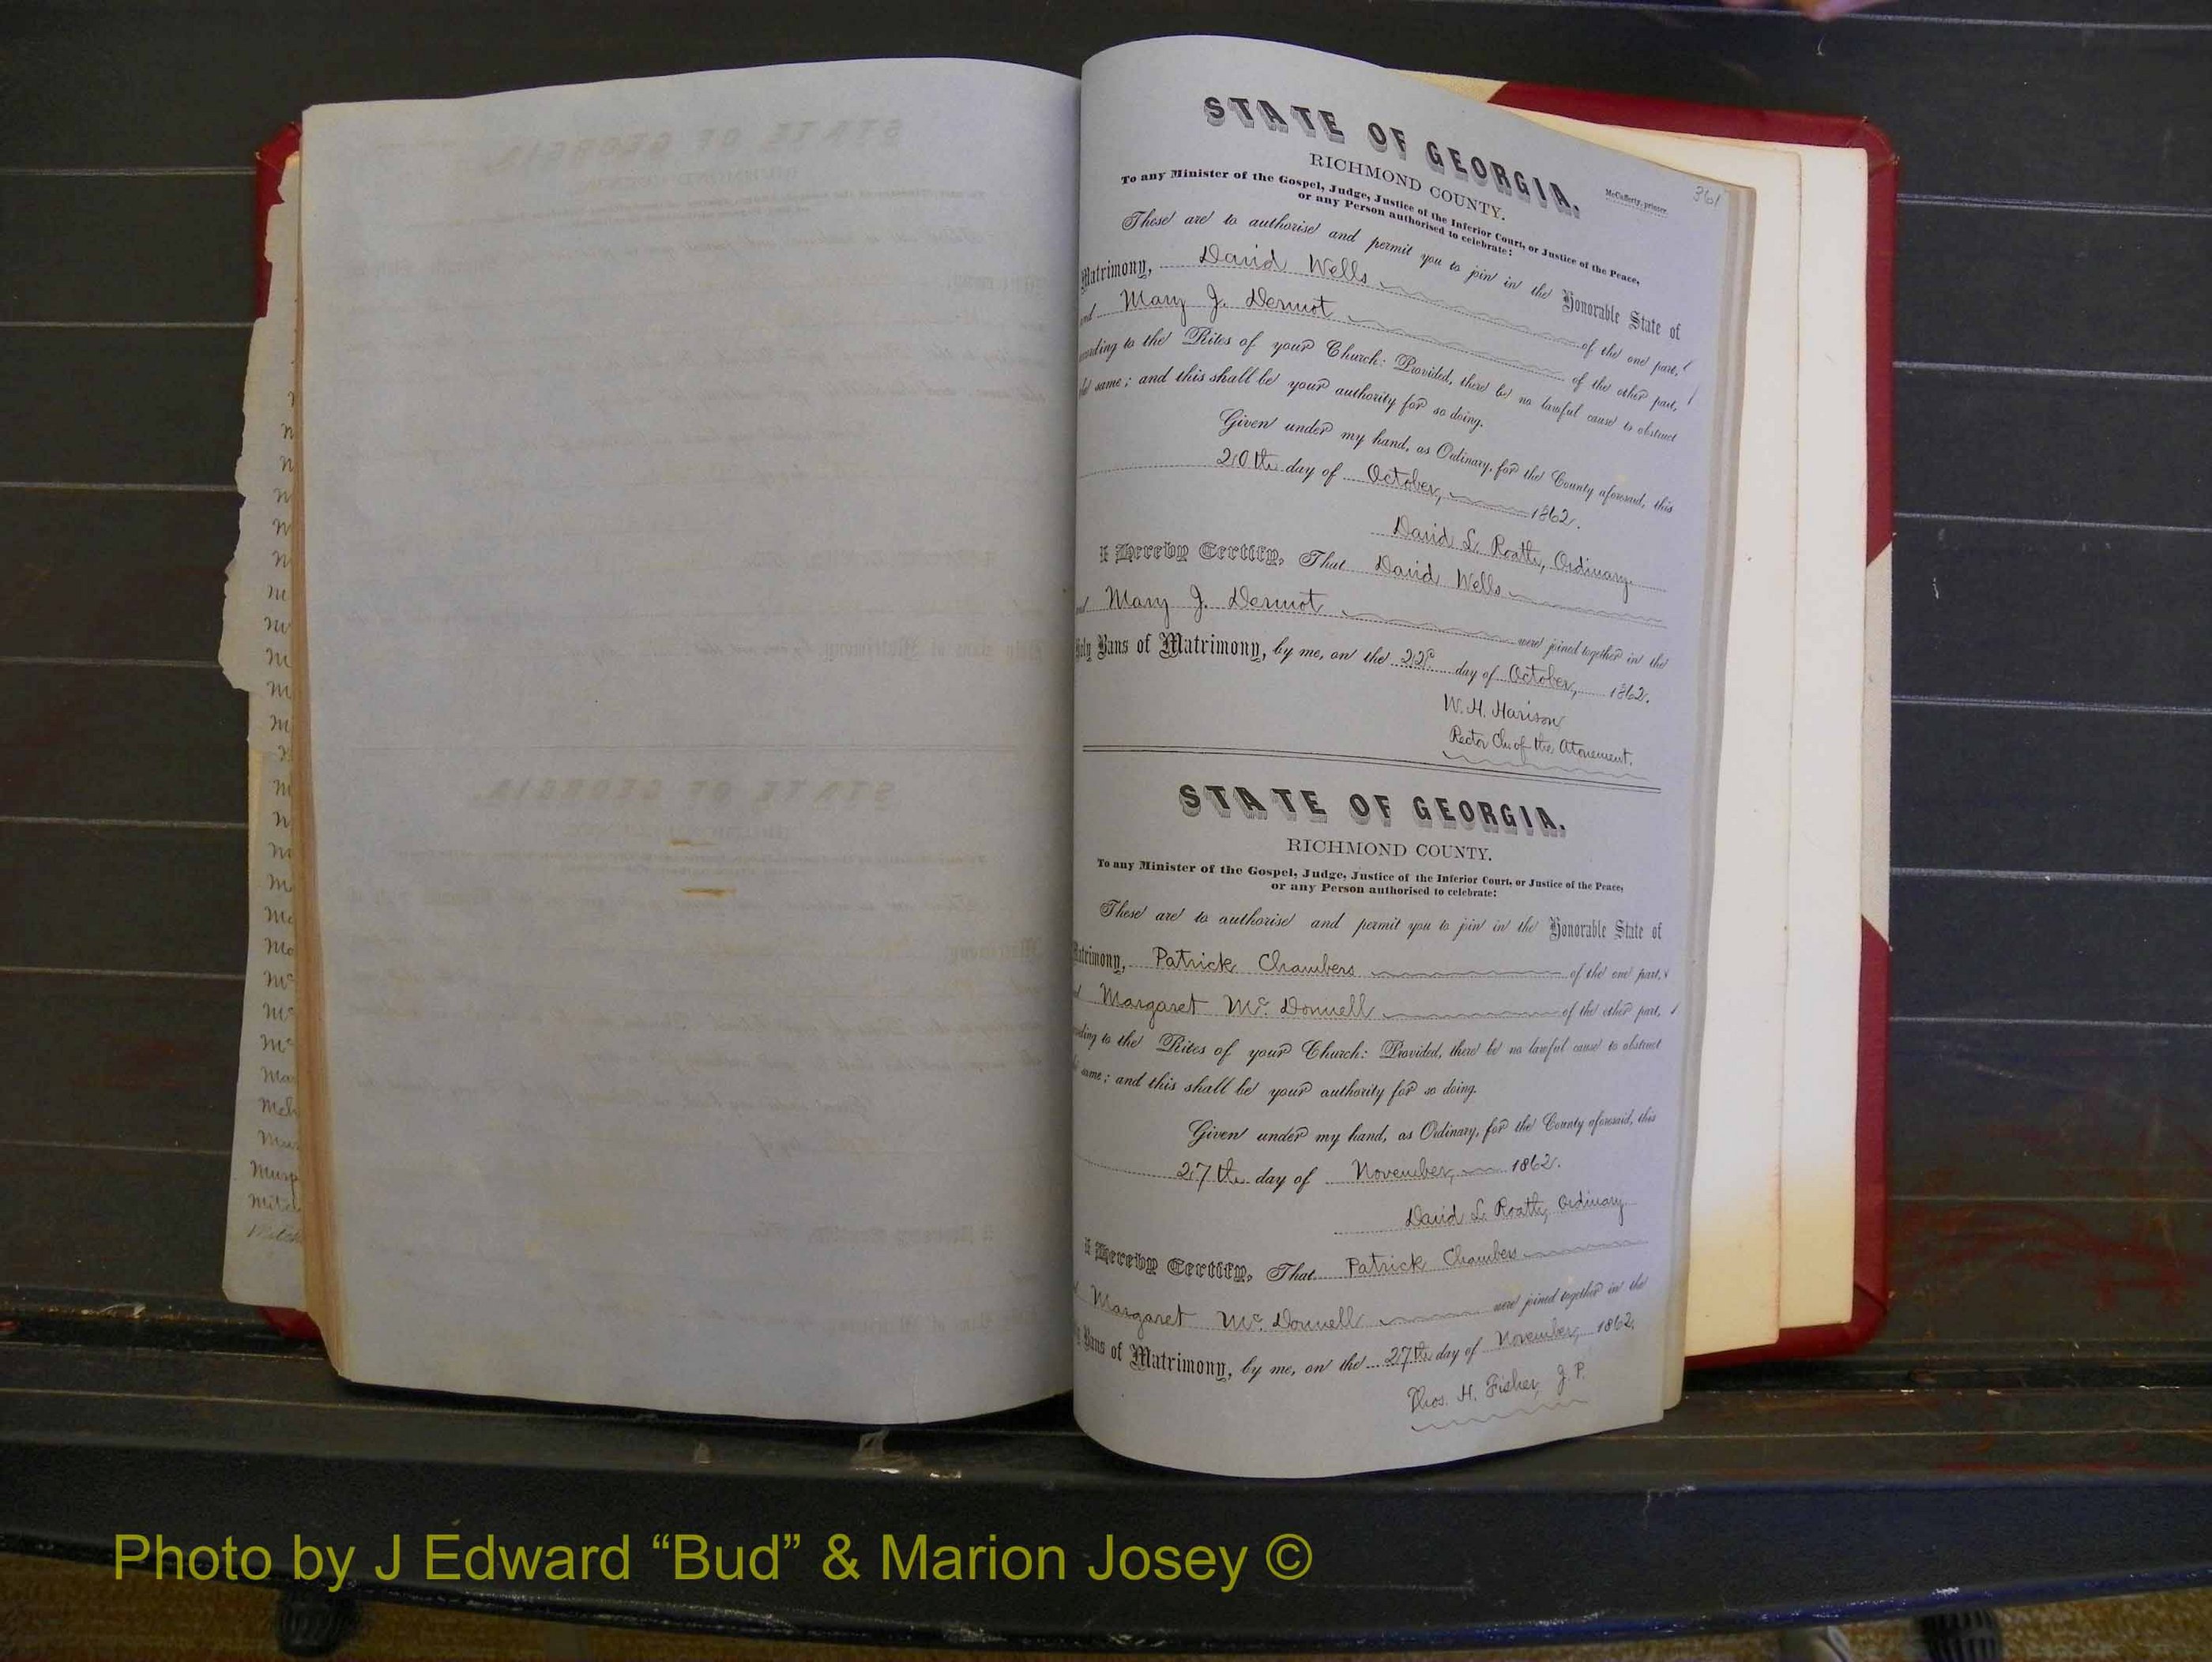 STATE OF GEORGIA.
McCafferty, printer
361
RICHMOND COUNTY.
To any Minister of the Gospel, Judge, Justice of the Inferior Court, or Justice of the Peace,
or any Person authorised to celebrate:
These are to authorise and permit you to join in the Honorable State of
Matrimony, David Wells of the one part,
and Mary J. Dermot of the other part,
according to the Rites of your Church: Provided, there be no lawful cause to obstruct
the same; and this shall be your authority for so doing.
Given under my hand, as Ordinary, for the County aforesaid, this
20th day of October, 1862.
David L. Roath, Ordinary.
I Hereby Certify, That David Wells
and Mary J. Dermot were joined together in the
Holy Bans of Matrimony, by me, on the 22d day of October, 1862.
W. H. Harison
Rector Ch. of the Atonement.
STATE OF GEORGIA.
RICHMOND COUNTY.
To any Minister of the Gospel, Judge, Justice of the Inferior Court, or Justice of the Peace,
or any Person authorised to celebrate:
These are to authorise and permit you to join in the Honorable State of
Matrimony, Patrick Chambers of the one part,
Margaret Mc. Donnell of the other part,
according to the Rites of your Church: Provided, there be no lawful cause to obstruct
same; and this shall be your authority for so doing.
Given under my hand, as Ordinary, for the County aforesaid, this
27th day of November, 1862.
David L. Roath, Ordinary
I Hereby Certify, That Patrick Chambers
Margaret Mc. Donnell were joined together in the
Bans of Matrimony, by me, on the 27th day of November, 1862.
Thos. H. Fisher, J. P.
Photo by J Edward “Bud” & Marion Josey ©